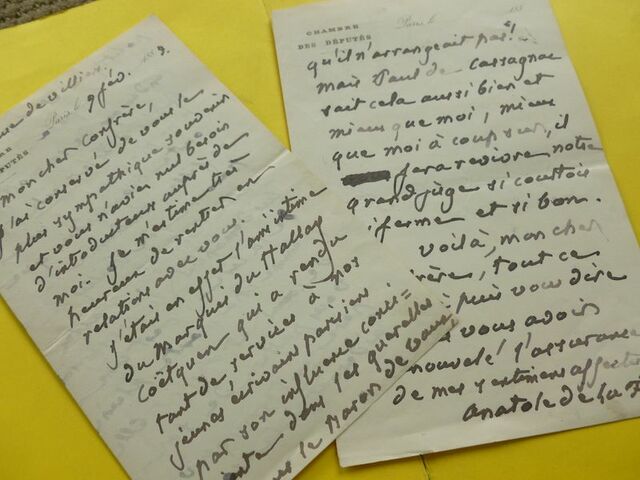 CHAMBRE
DES DÉPUTÉS
Paris le 188 9.
de Villiers
9 fév.
mon cher confrère,
j'ai conservé de vous le
plus sympathique souvenir
et vous n'aviez nul besoin
d'introducteurs auprès de
moi. Je m'estime très
heureux de rentrer en
relations avec vous.
J'étais en effet l'ami intime
du Marquis du Hallay
Coëtquen qui a rendu
tant de services à nos
jeunes écrivains parisiens
par son influence conci=
dans les querelles
le Baron de
CHAMBRE
DES DÉPUTÉS
Paris le 188
qu'il n'arrangeait pas!
mais Paul de Cassagnac
sait cela aussi bien et
mieux que moi, mieux
que moi à coup sûr, il
fera revivre notre
grand juge si courtois
si ferme et si bon.
voilà, mon cher
tout ce
puis vous dire
vous avoir
l'assurance
de mes sentimens affect
anatole de la